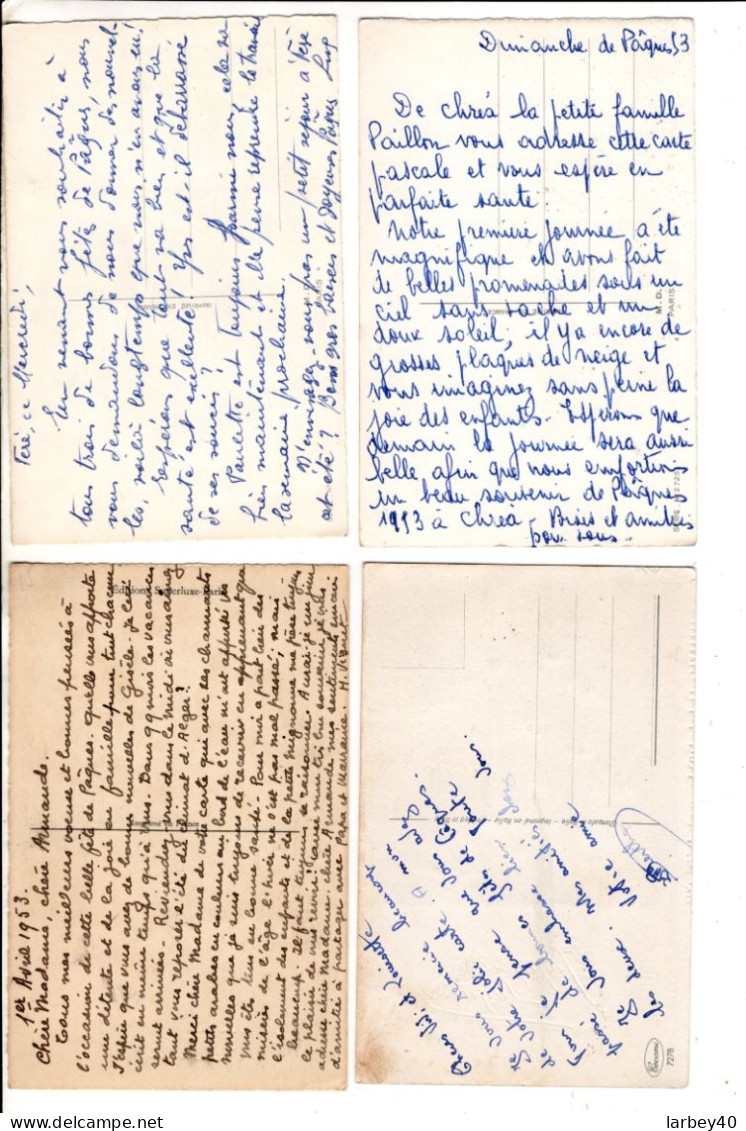 Féré, ce Mercredi,
En venant vous souhaiter à
tous trois de bonnes fête de Pâques, nous
vous demandons de nous donner des nouvel-
les, voilà longtemps que nous n'en avons eu.
Espérons que tout va bien et que la
santé est excellente! Yves est-il débarrassé
de ses soucis?
Paulette est toujours parmi nous, cela va
bien maintenant et elle pense reprendre le travail
la semaine prochaine.
N'envisagez-vous pas un petit séjour à Féré
cet été? Bons gros baisers et Joyeuses Pâques
Dimanche de Pâques 53
De Chréa la petite famille
Paillon vous adresse cette carte
pascale et vous espère en
parfaite santé.
Notre première journée a été
magnifique et avons fait
de belles promenades sous un
ciel sans tache et un
doux soleil, il y a encore de
grosses plaques de neige et
vous imaginez sans peine la
joie des enfants. Espérons que
demain la journée sera aussi
belle afin que nous emportions
un beau souvenir de Pâques
1953 à Chréa. Bises et amitiés
pour tous.
M.D.
PARIS
Editions Superluxe-Paris
1er Avril 1953.
Chère Madame, chère Armande.
Tous mes meilleurs voeux et bonnes pensées à
l'occasion de cette belle fête de Pâques. qu'elle vous apporte
une détente et de la joie en famille pour tout chacune
J'espère que vous avez de bonnes nouvelles de Gisèle. je lui
écrit en même temps qu'à vous. Dans 99 mois les vacances
seront arrivées. Reviendrez vous dans le Midi où vous aimez
tant vous reposer l'été du climat d'Alger?
Merci chère Madame de votre carte qui avec ses charmants
petits arabes en couleurs au bord de l'eau m'ont apporté vos
nouvelles que je suis toujours de recevoir en apprenant que
vous êtes tous en bonne santé. Pour moi à part bien des
misères de l'âge l'hiver ne s'est pas mal passé, mais
l'isolement des enfants et de la petite mignonne me pèse toujours
beaucoup. Il faut toujours se raisonner. Aurai-je un jour
le plaisir de vous revoir?
adresse chère Madame, chère Armande mes sentiments
d'amitié à partager avec Papa et Marraine. M.
Chers
vous remercie beaucoup
de votre jolie carte. A mon
tour je pense que vous avez
passé de bonnes fêtes de Pâques.
Je vous embrasse bien fort
tous deux. Mes amitiés
Votre amie
Bertha
7278
larbey40